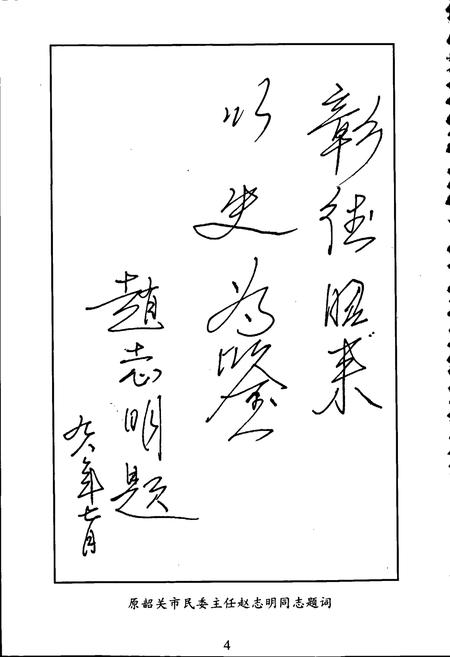 彰往昭来
以史为鉴
趙志明题
九八年七月
原韶关市民委主任赵志明同志题词
4